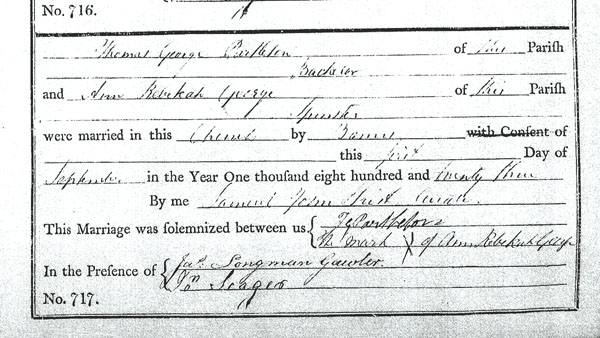 No. 716.
Thomas George Partleton of this Parish
Bachelor
and Ann Rebekah George of this Parish
Spinster
were married in this Church by Banns with Consent of
this first Day of
September in the Year One thousand eight hundred and twenty three
By me Samuel Curate.
This Marriage was solemnized between us { T G Partleton
The mark X of Ann Rebekah George
In the Presence of { Jas. Longman Gawler.
Jn Seager
No. 717.